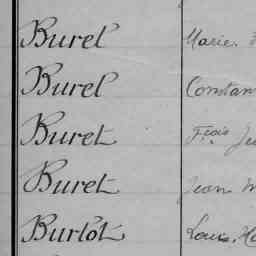 Burel Marie
Burel Constan
Buret Fçois Je
Buret Jean M
Burlot Louis. M